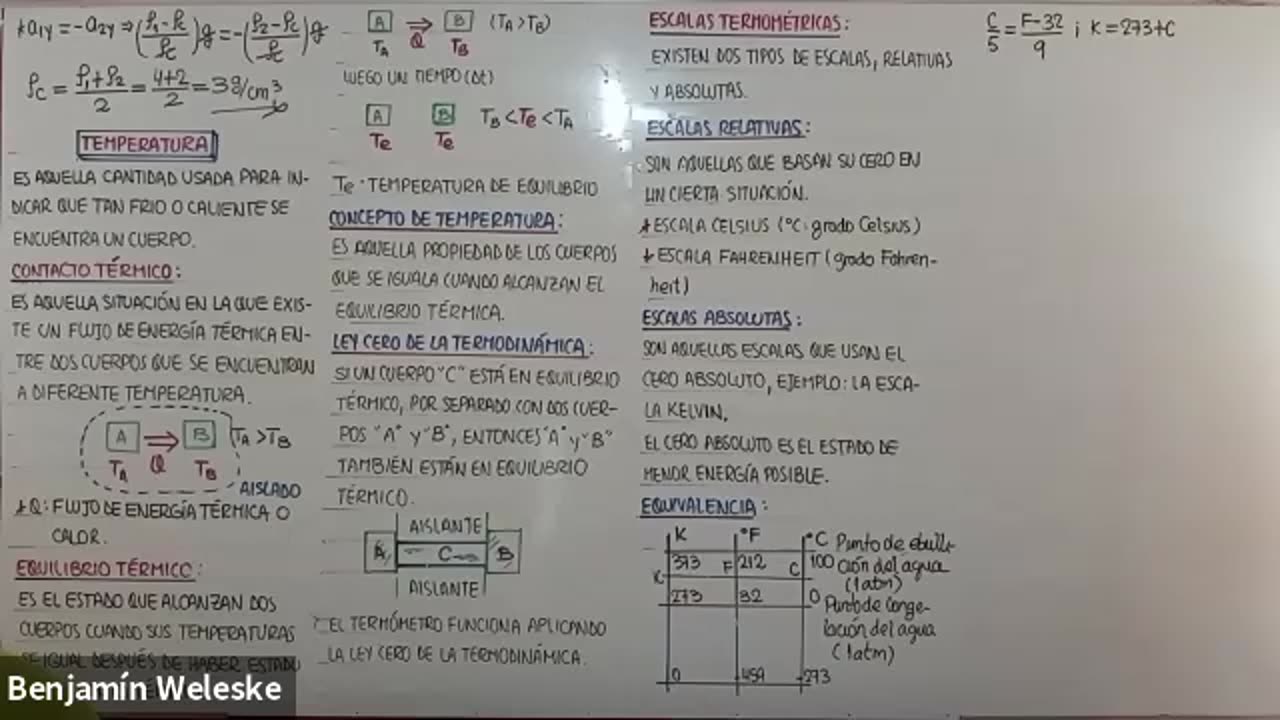 *a1y = -a2y ⇒ ((ρ1-ρc)/ρc)g = -((ρ2-ρc)/ρc)g
ρc = (ρ1+ρ2)/2 = (4+2)/2 = 3g/cm³
TEMPERATURA
ES AQUELLA CANTIDAD USADA PARA IN-
DICAR QUE TAN FRIO O CALIENTE SE
ENCUENTRA UN CUERPO.
CONTACTO TÉRMICO:
ES AQUELLA SITUACIÓN EN LA QUE EXIS-
TE UN FLUJO DE ENERGÍA TÉRMICA EN-
TRE DOS CUERPOS QUE SE ENCUENTRAN
A DIFERENTE TEMPERATURA.
A ⇒ B TA > TB
TA Q TB
AISLADO
*Q: FLUJO DE ENERGÍA TÉRMICA O
CALOR.
EQUILIBRIO TÉRMICO:
ES EL ESTADO QUE ALCANZAN DOS
CUERPOS CUANDO SUS TEMPERATURAS
SE IGUAL DESPUÉS DE HABER ESTADO
Benjamín Weleske
A ⇒ B (TA > TB)
TA Q TB
LUEGO UN TIEMPO (Δt)
A B TB < Te < TA
Te Te
Te: TEMPERATURA DE EQUILIBRIO
CONCEPTO DE TEMPERATURA:
ES AQUELLA PROPIEDAD DE LOS CUERPOS
QUE SE IGUALA CUANDO ALCANZAN EL
EQUILIBRIO TÉRMICA.
LEY CERO DE LA TERMODINÁMICA:
SI UN CUERPO "C" ESTÁ EN EQUILIBRIO
TÉRMICO, POR SEPARADO CON DOS CUER-
POS "A" Y "B", ENTONCES "A" Y "B"
TAMBIÉN ESTÁN EN EQUILIBRIO
TÉRMICO.
AISLANTE
A C B
AISLANTE
EL TERMÓMETRO FUNCIONA APLICANDO
LA LEY CERO DE LA TERMODINÁMICA.
ESCALAS TERMOMÉTRICAS:
EXISTEN DOS TIPOS DE ESCALAS, RELATIVAS
Y ABSOLUTAS.
ESCALAS RELATIVAS:
SON AQUELLAS QUE BASAN SU CERO EN
UN CIERTA SITUACIÓN.
*ESCALA CELSIUS (°C: grado Celsius)
*ESCALA FAHRENHEIT (grado Fahren-
heit)
ESCALAS ABSOLUTAS:
SON AQUELLAS ESCALAS QUE USAN EL
CERO ABSOLUTO, EJEMPLO: LA ESCA-
LA KELVIN.
EL CERO ABSOLUTO ES EL ESTADO DE
MENOR ENERGÍA POSIBLE.
EQUIVALENCIA:
K °F °C Punto de ebulli-
373 F 212 C 100 ción del agua
K (1atm)
273 32 0 Punto de conge-
lación del agua
(1atm)
0 -459 -273
C/5 = (F-32)/9 ; K = 273+C